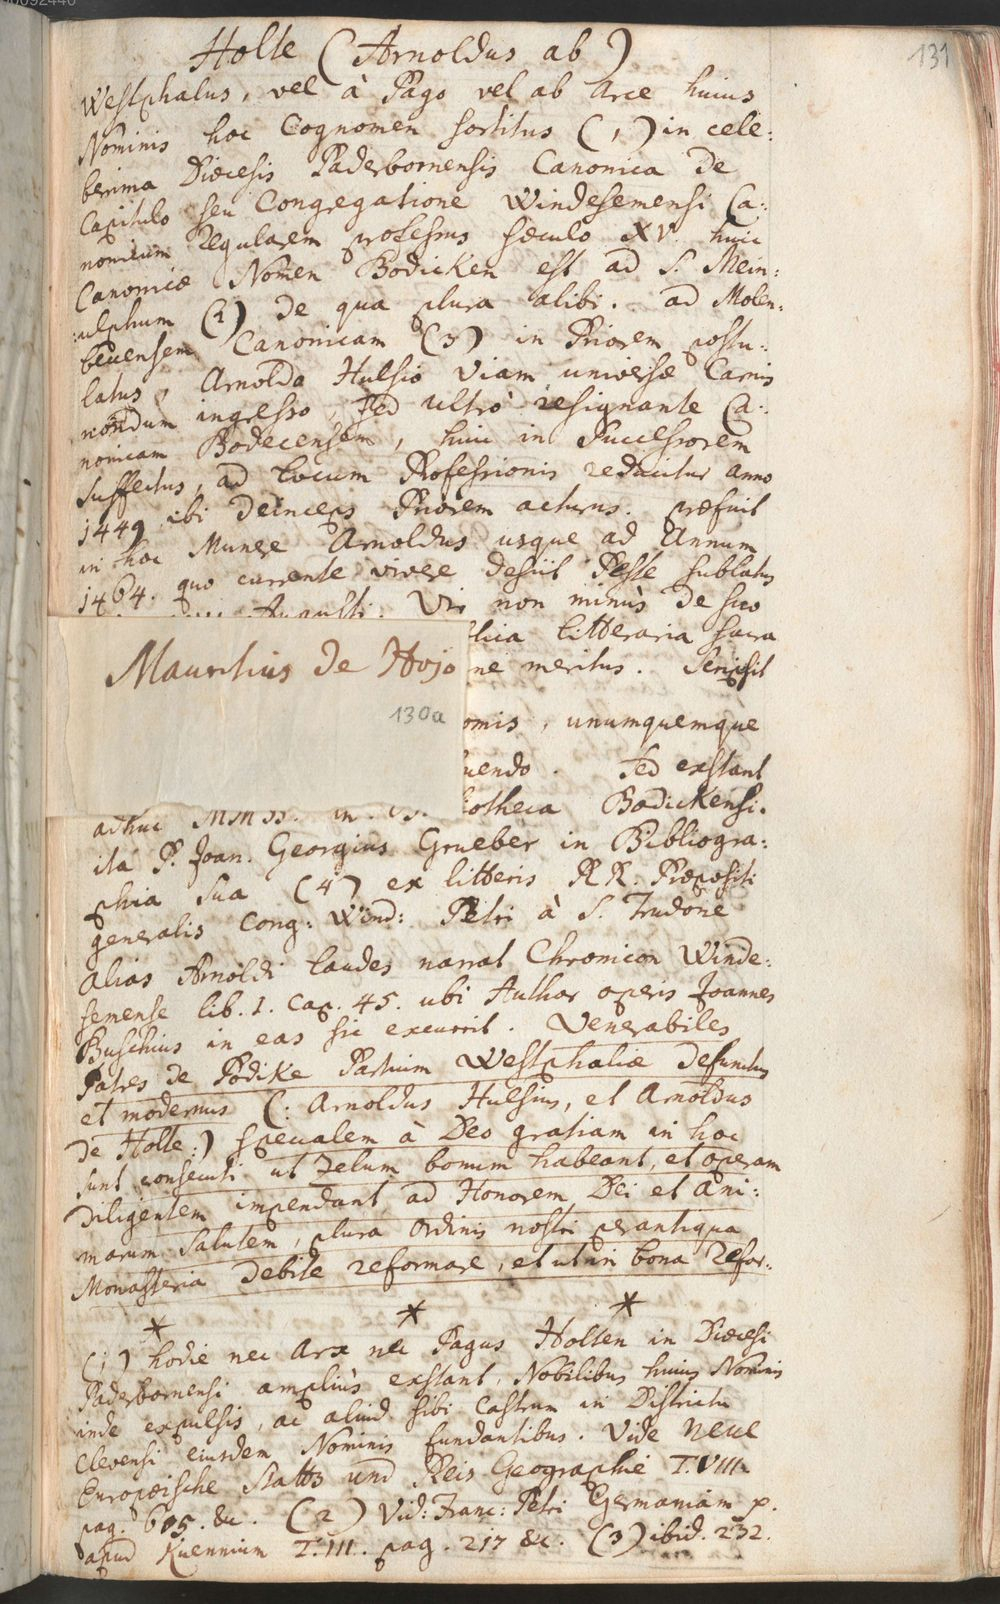 131
Holte (Arnoldus ab)
Westphalus, vel à Pago vel ab Arce huius
Nominis hoc Cognomen sortitus (1) in cele:
berima Diœcesis Paderbornensis Canonica de
Capitulo seu Congregatione Windesemensi Ca:
nonicum Regularem professus sæculo XV. huic
Canonicæ Nomen Bodicken est ad S. Mein:
ulphum (2) de qua plura alibi. ad Molen:
becensem Canonicam (3) in Priorem postu:
latus, Arnoldo Hulsio viam universæ Carnis
nondum ingresso, sed ultrò resignante Ca:
nonicam Bodecensem, huic in Successorem
suffectus, ad locum Professionis reducitur anno
1449 ibi deinceps Priorem acturus. præfuit
in hoc Munere Arnoldus usque ad Annum
1464. quo currente vivere desiit Peste sublatus
Augusti. Vir non minùs de suo
litteraria sacra
ne meritus. Scripsit
Mauritius de Hojo
130a
omis, unumquemque
uendo. Sed exstant
adhuc MMss. in Bibliotheca Bodickensi.
ita P. Joan. Georgius Grueber in Bibliogra:
phia sua (4) ex litteris RR. Præpositi
generalis Cong: Wind: Petri à S. Trudone
alias Arnoldi laudes narrat Chronicon Winde:
semense lib. 1. cap. 45. ubi Author operis Joannes
Buschius in eas sic excurrit. Venerabiles
Patres de Bodike Partium Westphaliæ defunctus
et modernus (: Arnoldus Hulsius, et Arnoldus
de Holte:) specialem à Deo gratiam in hoc
sunt consecuti ut zelum bonum habeant, et operam
diligentem impendant ad Honorem Dei et ani:
marum salutem, plura ordinis nostri perantiqua
Monasteria debite reformare, et ut in bona refor:
* * *
(1) hodie nec Arx nec Pagus Holten in Diœcesi
Paderbornensi ampliùs exstant, Nobilibus huius Nominis
inde expulsis, ac aliud sibi Castrum in Districtu
Clevensi eiusdem Nominis fundantibus. Vide Neue
Europæische Staats und Reis Geographie T. VIII.
pag. 605. &c. (2) Vid: Franc: Petri Germaniam p.
apud Kuennium T. III. pag. 217 &c. (3) ibid. 232.